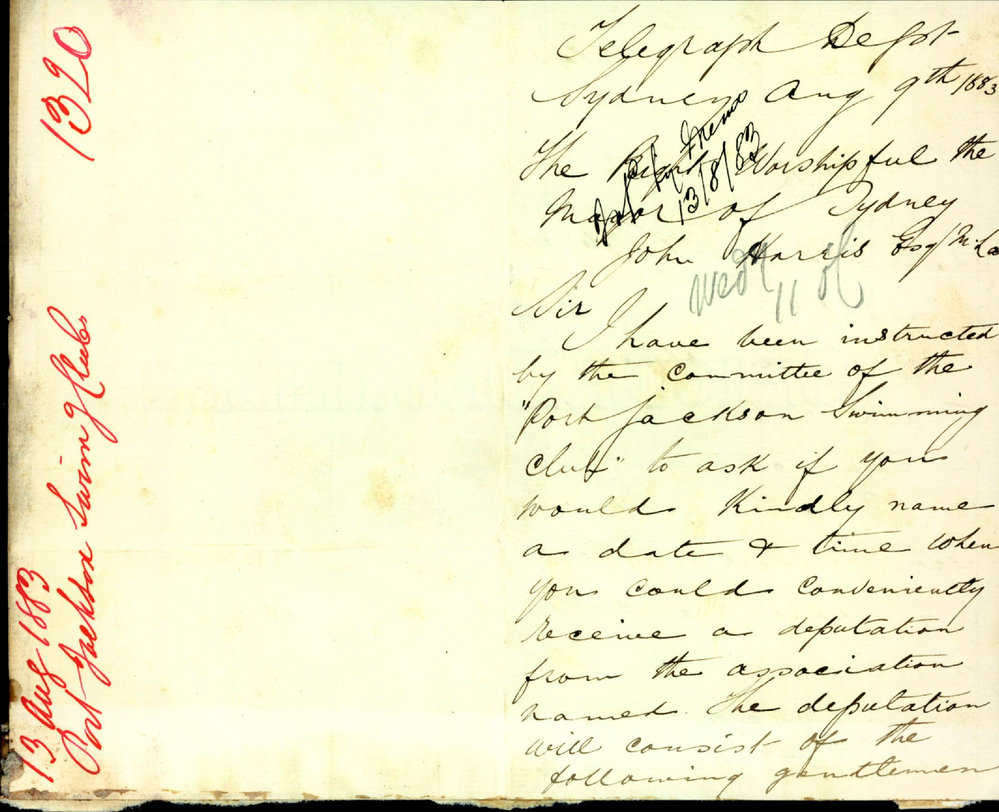 1320
13 Aug 1883
Port Jackson Swimg Club
Telegraph Depot
Sydney Aug 9th 1883
The Right Worshipful the
Mayor of Sydney
John Harris Esq
13/8/83
Wed 11
Sir
I have been instructed
by the committee of the
"Port Jackson Swimming
Club" to ask if you
would kindly name
a date & time when
you could conveniently
receive a deputation
from the association
named. The deputation
will consist of the
following gentlemen